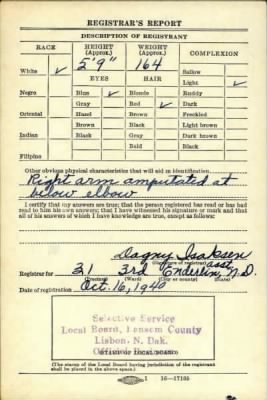 REGISTRAR'S REPORT
DESCRIPTION OF REGISTRANT
RACE HEIGHT (Approx.) WEIGHT (Approx.) COMPLEXION
5'9" 164 Sallow
White ✓ EYES HAIR Light ✓
Negro Blue ✓ Blonde Ruddy
Gray Red ✓ Dark
Oriental Hazel Brown Freckled
Brown Black Light brown
Indian Black Gray Dark brown
Bald Black
Filipino
Other obvious physical characteristics that will aid in identification
Right arm amputated at
below elbow
I certify that my answers are true; that the person registered has read or has had
read to him his own answers; that I have witnessed his signature or mark and that
all of his answers of which I have knowledge are true, except as follows:
Dagny Isaksen
(Signature of registrar) asst
Registrar for 3rd Enderlin, N.D.
(Precinct) (Ward) (City or county) (State)
Date of registration Oct. 16, 1940
Selective Service
Local Board, Ransom County
Lisbon, N. Dak.
(STAMP OF LOCAL BOARD)
(The stamp of the Local Board having jurisdiction of the registrant
shall be placed in the above space.)
16-17105